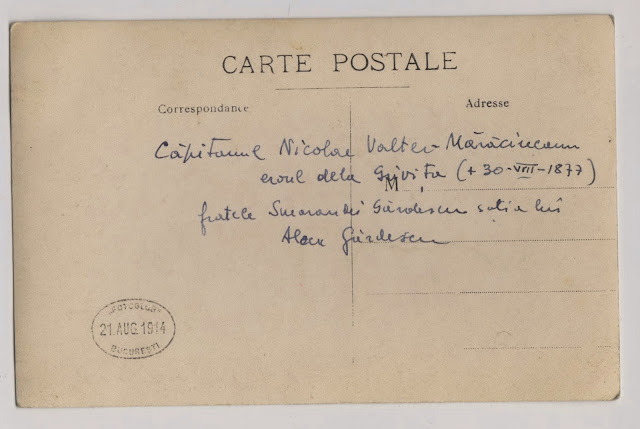 CARTE POSTALE
Correspondance
Adresse
Căpitanul Nicolae Valter Mărăcineanu
eroul dela Grivița (+ 30-VIII-1877)
M
fratele Smarandei Gârdescu soția lui
Alecu Gârdescu
21 AUG. 1914
BUCUREȘTI